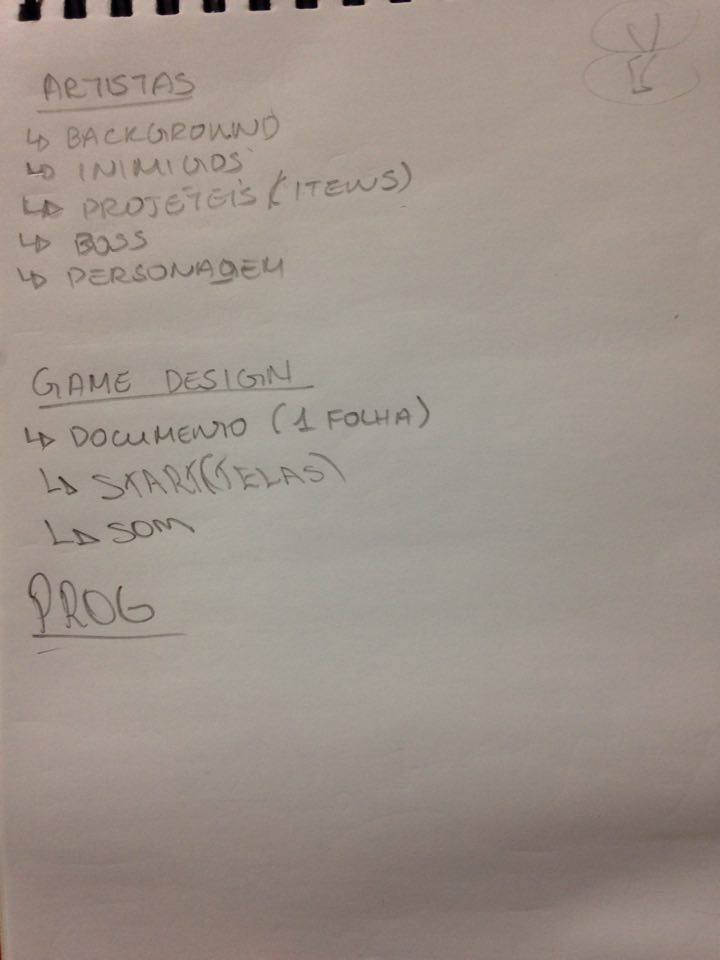 ARTISTAS
↳ BACKGROUND
↳ INIMIGOS
↳ PROJÉTEIS (ITEWS)
↳ BOSS
↳ PERSONAGEM
GAME DESIGN
↳ DOCUMENTO (1 FOLHA)
↳ START (TELAS)
↳ SOM
PROG